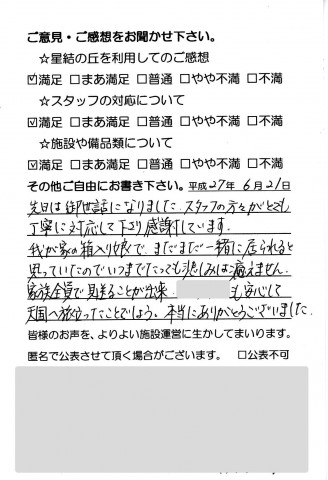 ご意見・ご感想をお聞かせ下さい。
☆星結の丘を利用してのご感想
☑満足 □まあ満足 □普通 □やや不満 □不満
☆スタッフの対応について
☑満足 □まあ満足 □普通 □やや不満 □不満
☆施設や備品類について
☑満足 □まあ満足 □普通 □やや不満 □不満
その他ご自由にお書き下さい。平成27年 6月21日
先日は御世話になりました。スタッフの方々がとても
丁寧に対応して下さり感謝しています。
我が家の箱入り娘で、まだまだ一緒に居られると
思っていたのでいつまでたっても悲しみは癒えません。
家族全員で見送ることが出来 も安心して
天国へ旅立ったことでしょう。本当にありがとうございました。
皆様のお声を、よりよい施設運営に生かしてまいります。
匿名で公表させて頂く場合がございます。 □公表不可